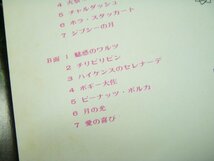 5 チャルダッシュ
6 ホラ・スタッカート
7 ジプシーの月
B面 1 魅惑のワルツ
2 チリビリビン
3 ハイケンスのセレナーデ
4 ボギー大佐
5 ピーナッツ・ポルカ
6 月の光
7 愛の喜び